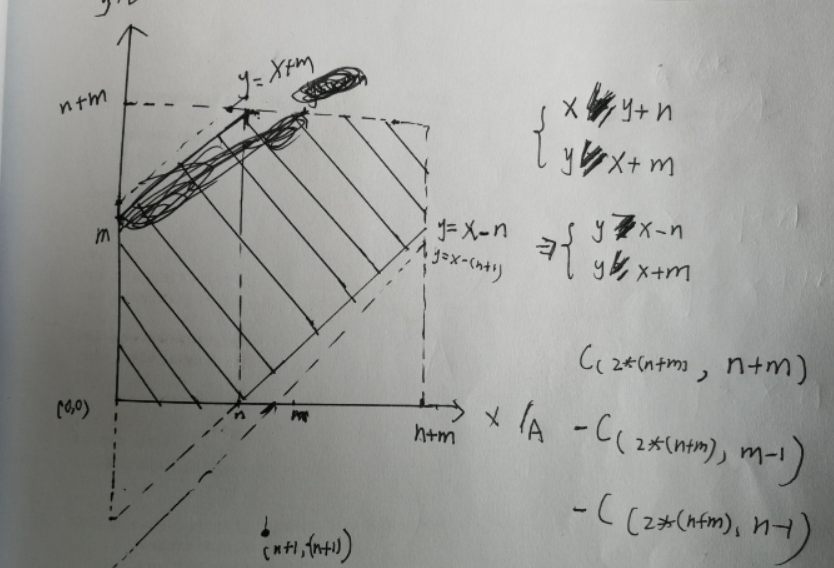 y = x+m
n+m
m
(0,0)
n
m
n+m
x /A
y = x-n
y=x-(n+1)
(n+1, -(n+1))
x y+n
y x+m
⇒ y x-n
y x+m
C(2*(n+m), n+m)
-C(2*(n+m), m-1)
-C(2*(n+m), n-1)